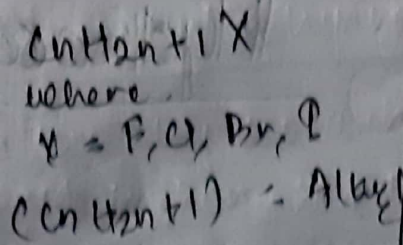 CnH2n+1 X
where
X = F, Cl, Br, I
(CnH2n+1) = Alkyl